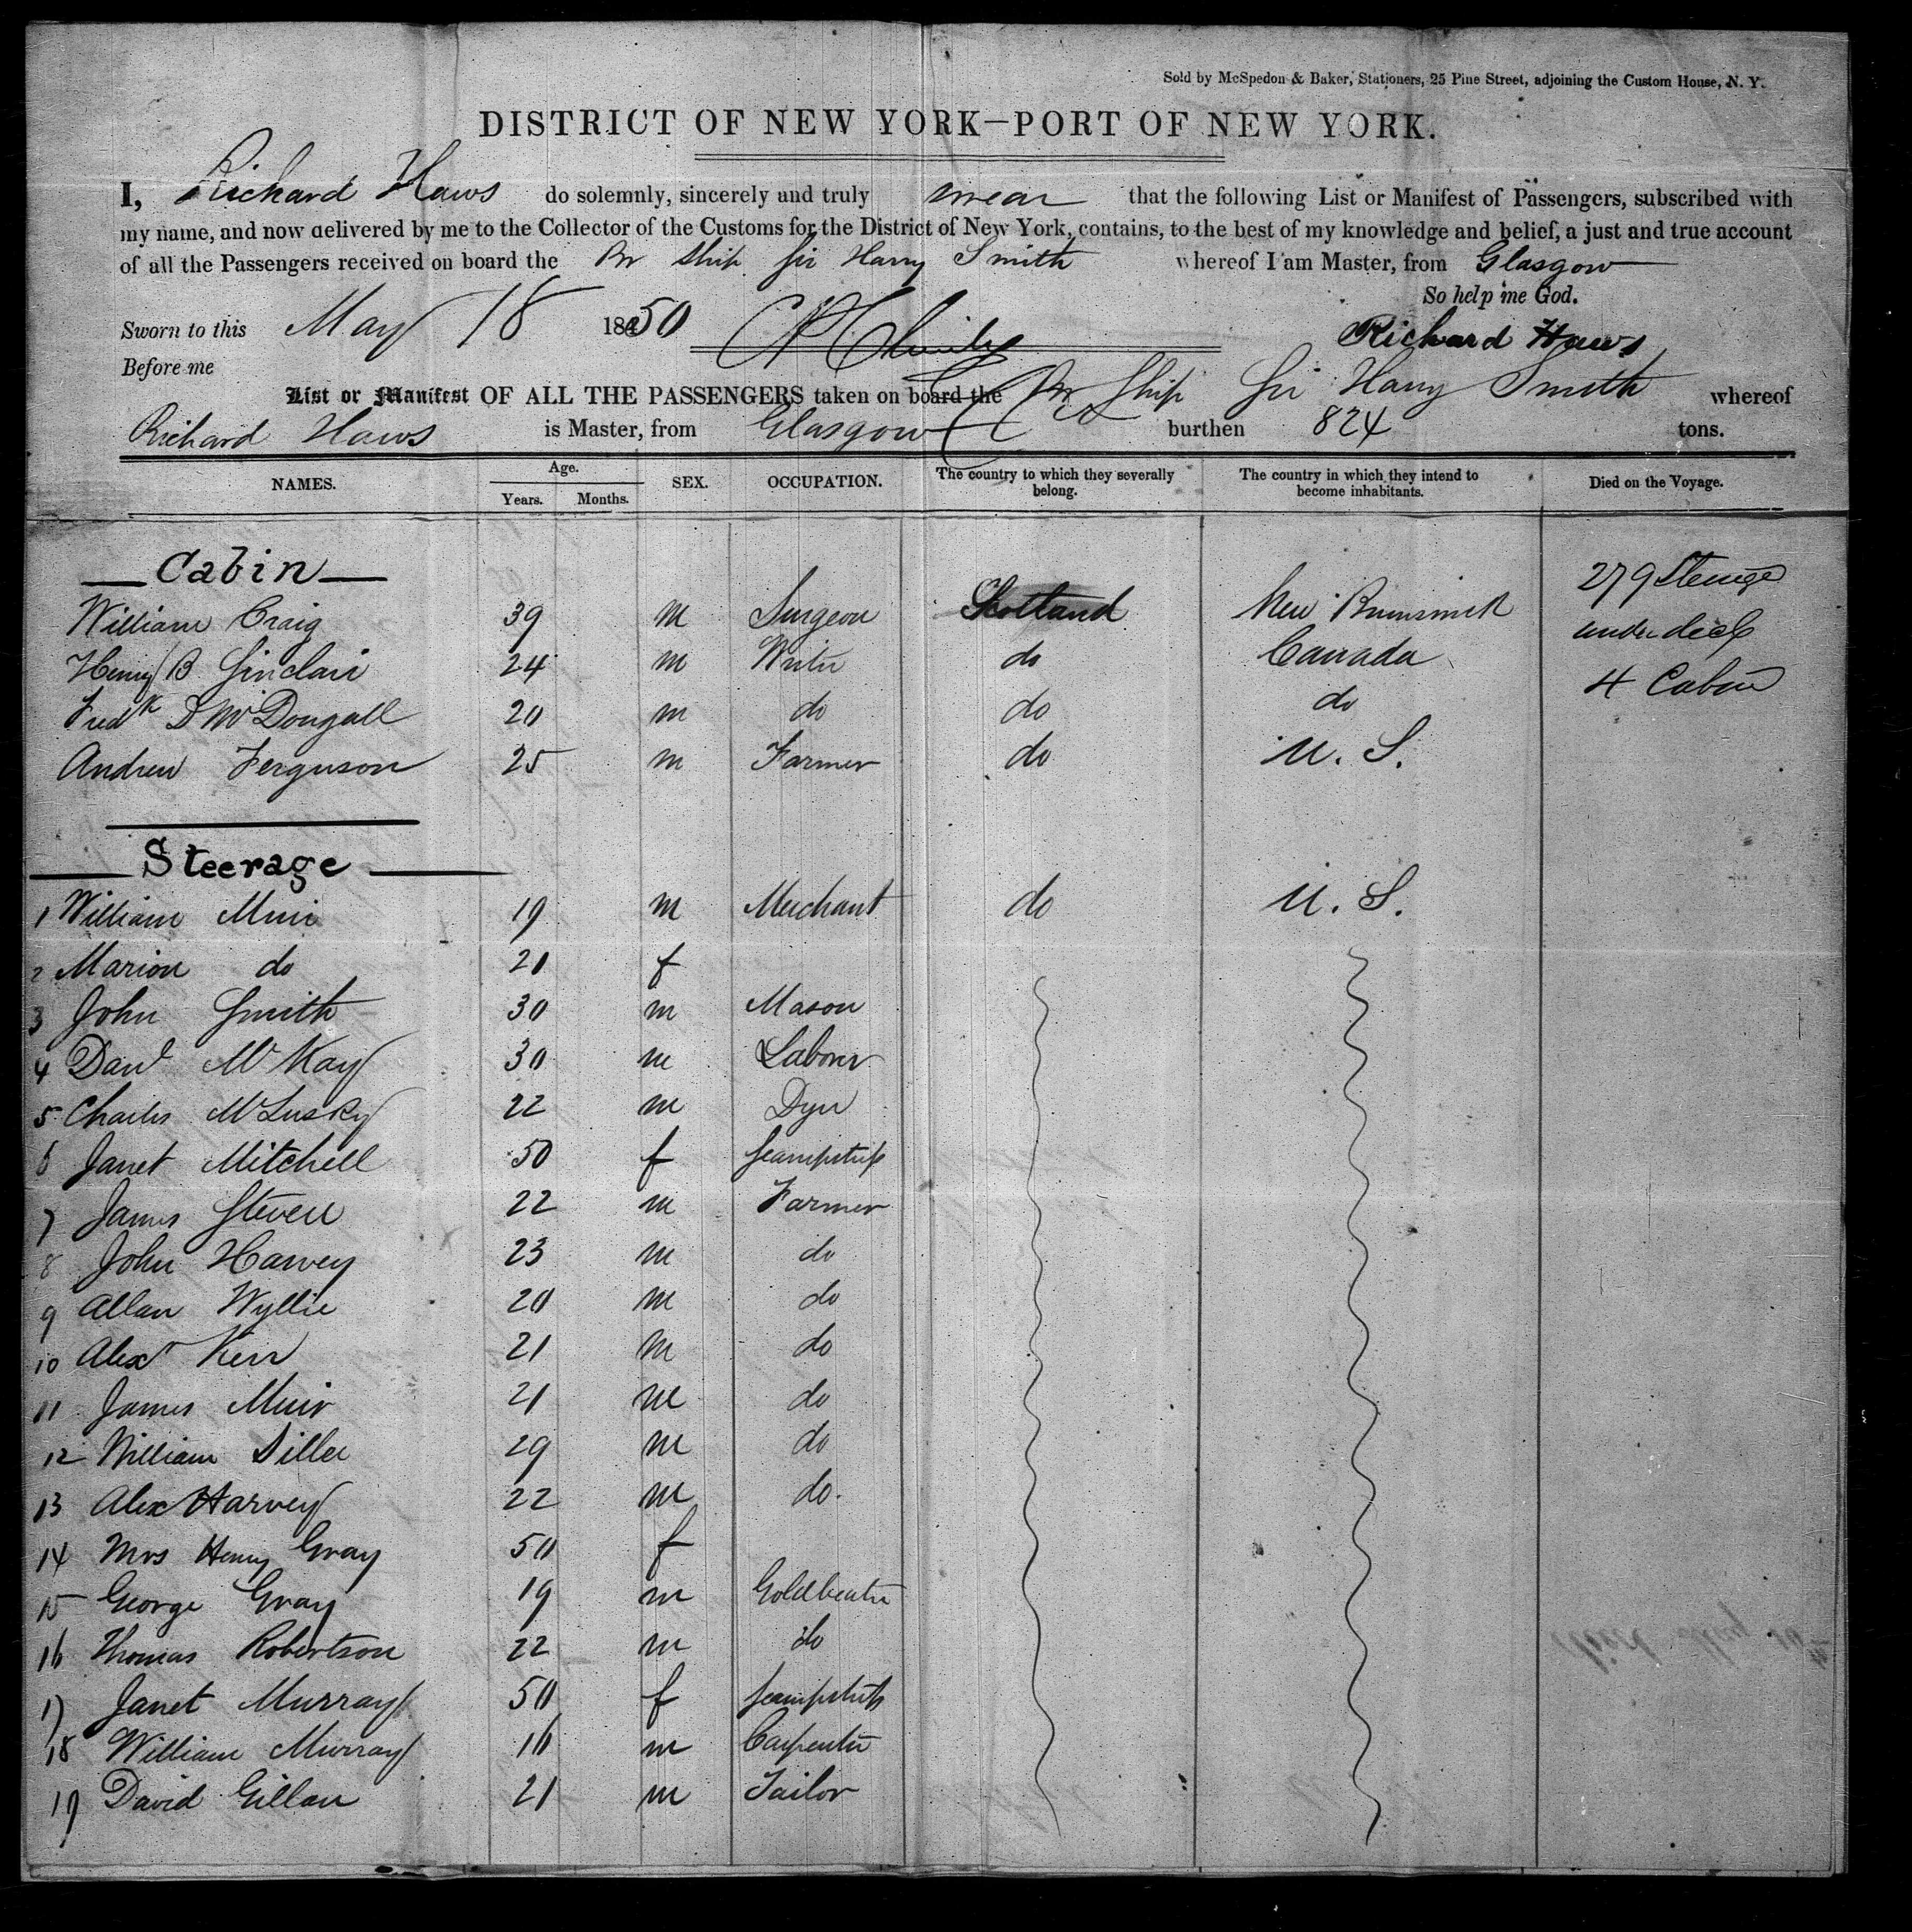 Sold by McSpedon & Baker, Stationers, 25 Pine Street, adjoining the Custom House, N. Y.
DISTRICT OF NEW YORK—PORT OF NEW YORK.
I, Richard Haws do solemnly, sincerely and truly swear that the following List or Manifest of Passengers, subscribed with
my name, and now delivered by me to the Collector of the Customs for the District of New York, contains, to the best of my knowledge and belief, a just and true account
of all the Passengers received on board the Br Ship Sir Harry Smith whereof I am Master, from Glasgow
So help me God.
Sworn to this May 18 1850 Richard Haws
Before me
List or Manifest OF ALL THE PASSENGERS taken on board the Br Ship Sir Harry Smith whereof
Richard Haws is Master, from Glasgow burthen 824 tons.
NAMES. Age. Years. Months. SEX. OCCUPATION. The country to which they severally belong. The country in which they intend to become inhabitants. Died on the Voyage.
Cabin
279 Steerage
William Craig 39 m Surgeon Scotland New Brunswick
under deck
Henry B Sinclair 24 m Writer do Canada
4 Cabin
Fredk S McDougall 20 m do do do
Andrew Ferguson 25 m Farmer do U. S.
Steerage
1 William Muir 19 m Merchant do U. S.
2 Marion do 20 f
3 John Smith 30 m Mason
4 Danl McKay 30 m Labourer
5 Charles McLusky 22 m Dyer
6 Janet Mitchell 50 f Seampstress
7 James Steven 22 m Farmer
8 John Harvey 23 m do
9 Allan Wyllie 20 m do
10 Alexr Kerr 21 m do
11 James Muir 21 m do
12 William 29 m do
13 Alex Harvey 22 m do.
14 Mrs Henry Gray 50 f
15 George Gray 19 m Goldbeater
16 Thomas Robertson 22 m do
17 Janet Murray 50 f Seampstress
18 William Murray 16 m Carpenter
19 David Gillan 21 m Tailor